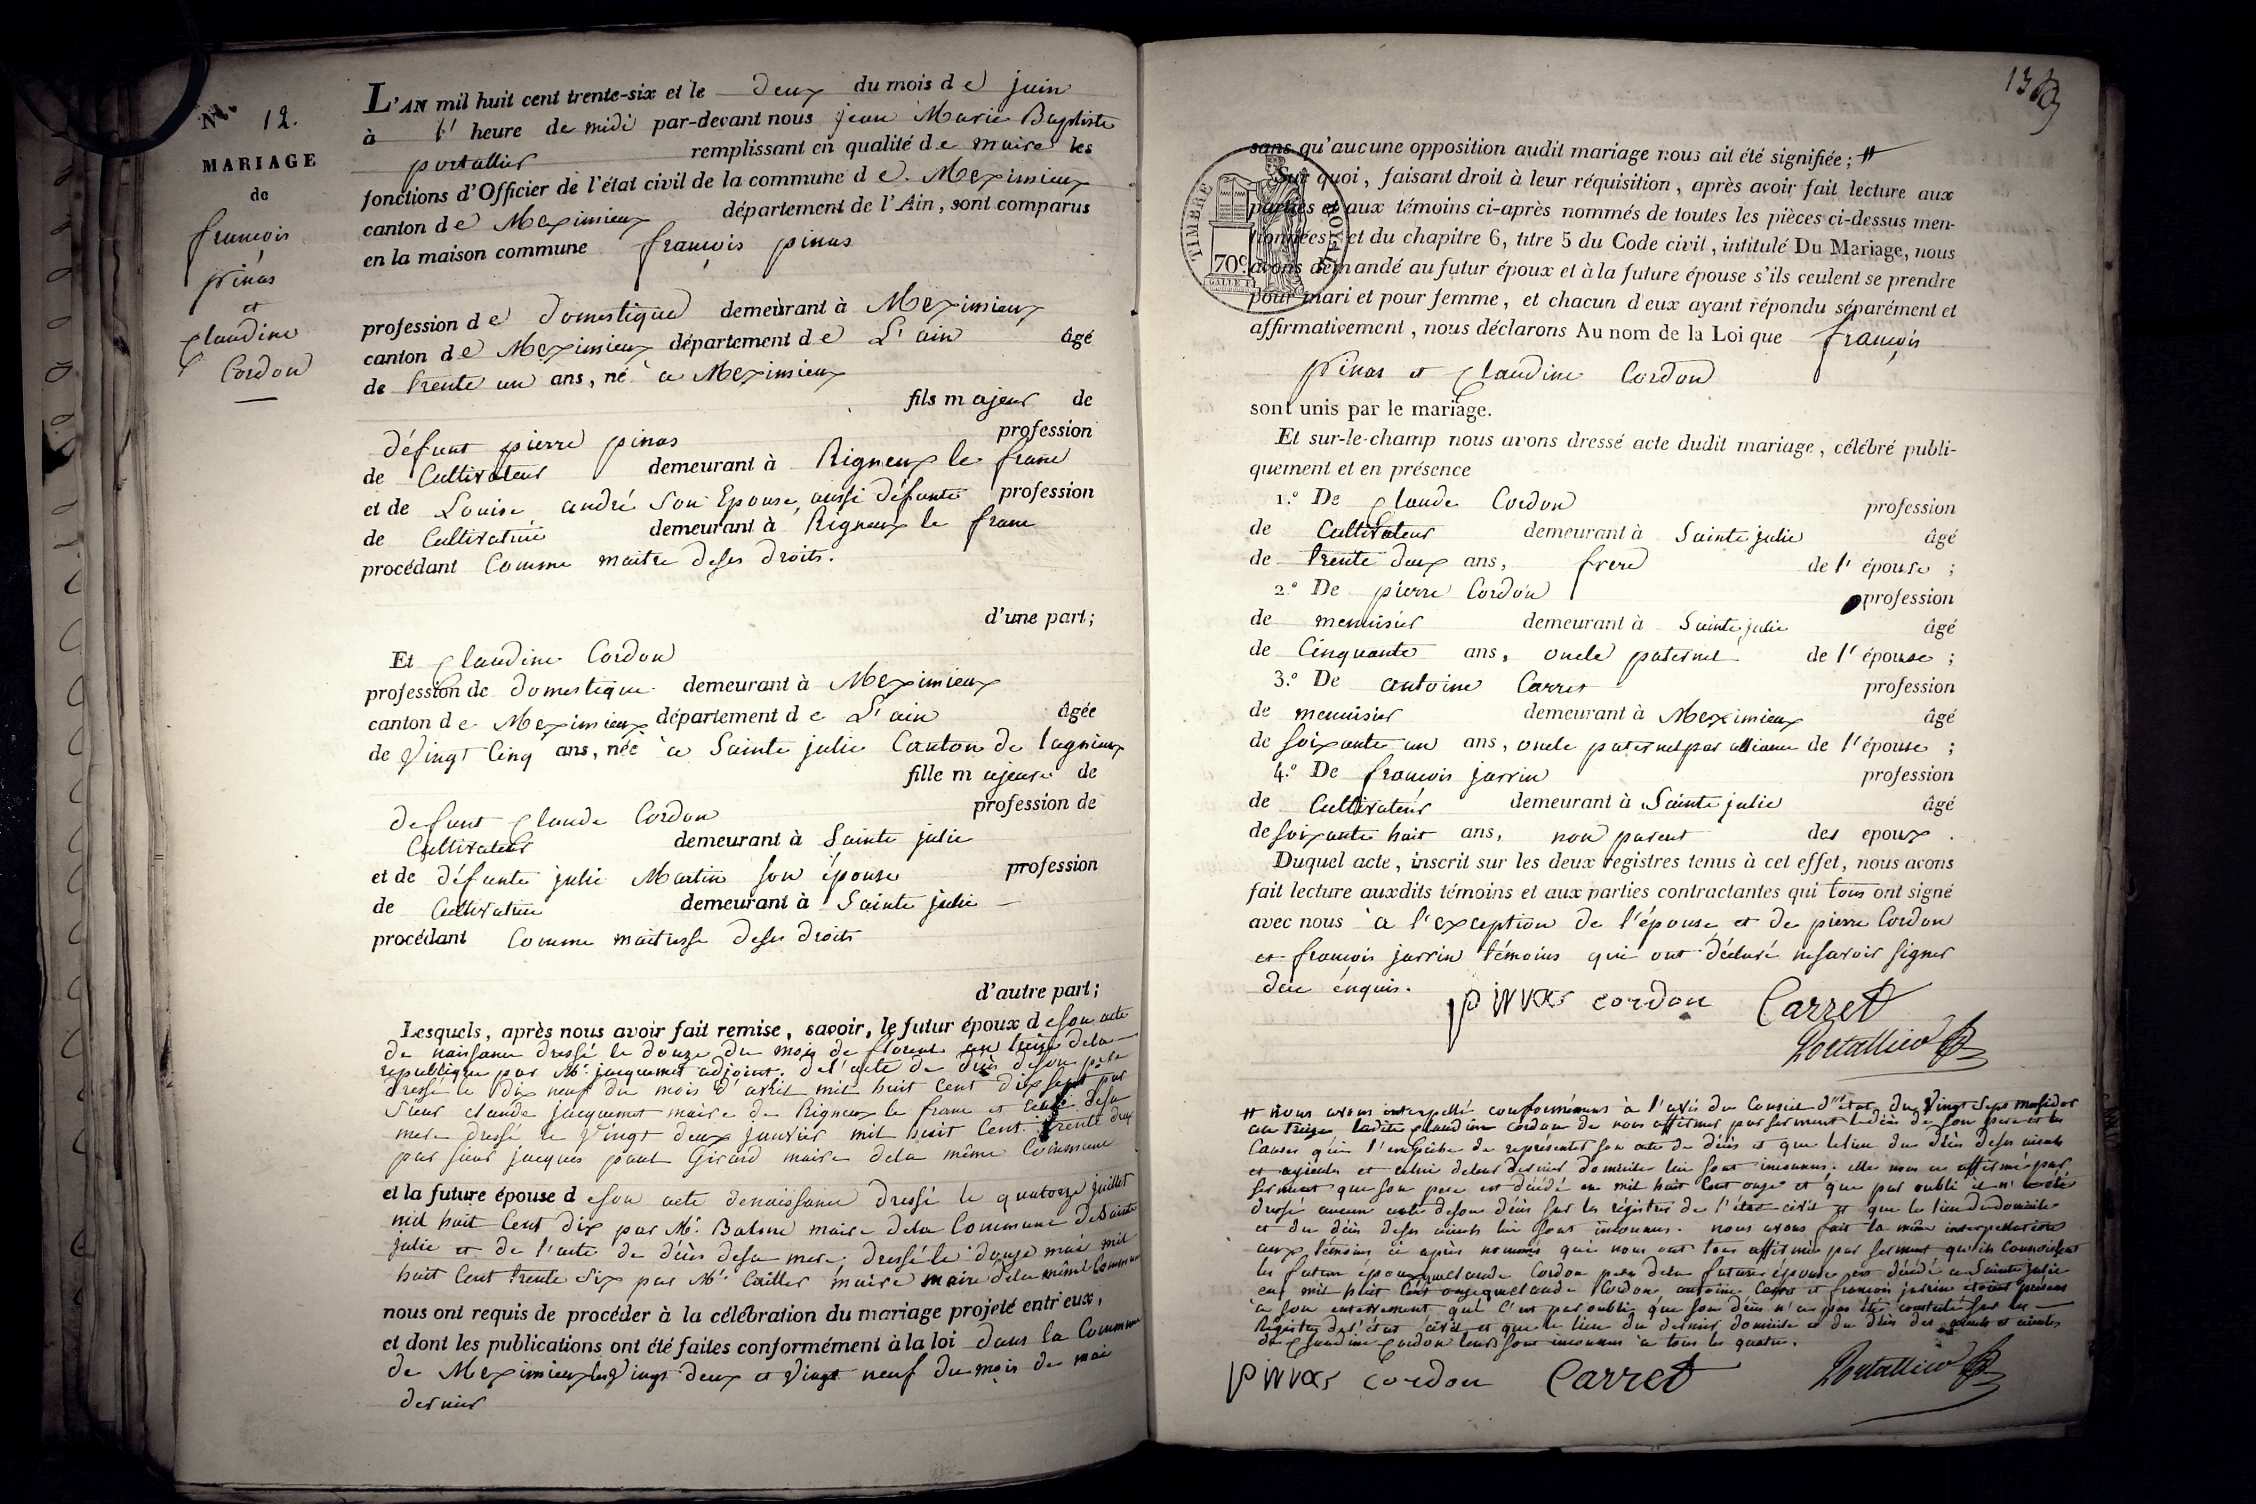 N.º 12.
MARIAGE
de
françois
pinas
et
Claudine
Cordon
L'AN mil huit cent trente-six et le deux du mois de juin
à l' heure de midi par-devant nous jean Marie Baptiste
portallier remplissant en qualité de maire les
fonctions d'Officier de l'état civil de la commune de Meximieux
canton de Meximieux département de l'Ain, sont comparus
en la maison commune françois pinas
profession de domestique demeurant à Meximieux
canton de Meximieux département de L'ain âgé
de trente un ans, né à Meximieux
fils majeur de
défunt pierre pinas profession
de Cultivateur demeurant à Rigneux le franc
et de Louise andré son Epouse, aussi défunte profession
de Cultivatrice demeurant à Rigneux le franc
procédant Comme maitre deses droits.
d'une part;
Et Claudine Cordon
profession de domestique demeurant à Meximieux
canton de Meximieux département de L'ain âgée
de Vingt Cinq ans, née à Sainte julie Canton de lagnieux
fille majeure de
defunt Claude Cordon profession de
Cultivateur demeurant à Sainte julie
et de défunte julie Martin son épouse profession
de Cultivatrice demeurant à Sainte julie
procédant Comme maitresse deses droits
d'autre part;
Lesquels, après nous avoir fait remise, savoir, le futur époux de son acte
de naissance dressé le douze du mois de floreal an treize dela
republique par Mr. jacquemet adjoint. de l'acte de décès deson père
dressé le dix neuf du mois d'avril mil huit Cent dix sept par
Sieur claude jacquemet maire de Rigneux le franc et celui desa
mere dressé le Vingt deux janvier mil huit Cent trente deux
par sieur jacques paul Girard maire dela même Commune
et la future épouse de son acte denaissance dressé le quatorze juillet
mil huit Cent dix par Mr. Balme maire dela Commune deSainte
julie et de l'acte de décès desa mere dressé le douze mai mil
huit Cent trente Six par Mr. Cailler maire maire dela même Commune
nous ont requis de procéder à la célébration du mariage projeté entr'eux,
et dont les publications ont été faites conformément à la loi dans la Commune
de Meximieux les Vingt deux et Vingt neuf du mois de mai
dernier
sans qu'aucune opposition audit mariage nous ait été signifiée; #
Sur quoi, faisant droit à leur réquisition, après avoir fait lecture aux
parties et aux témoins ci-après nommés de toutes les pièces ci-dessus men-
tionnées, et du chapitre 6, titre 5 du Code civil, intitulé Du Mariage, nous
avons demandé au futur époux et à la future épouse s'ils veulent se prendre
pour mari et pour femme, et chacun d'eux ayant répondu séparément et
affirmativement, nous déclarons Au nom de la Loi que françois
pinas et Claudine Cordon
sont unis par le mariage.
TIMBRE ROYAL
70c
Et sur-le-champ nous avons dressé acte dudit mariage, célébré publi-
quement et en présence
1.º De Claude Cordon profession
de Cultivateur demeurant à Sainte julie âgé
de trente deux ans, frere de l' épouse ;
2.º De pierre Cordon profession
de menuisier demeurant à Sainte julie âgé
de Cinquante ans, oncle paternel de l' épouse ;
3.º De antoine Carret profession
de menuisier demeurant à Meximieux âgé
de soixante un ans, oncle paternel par alliance de l'épouse ;
4.º De françois jarrin profession
de Cultivateur demeurant à Sainte julie âgé
de soixante huit ans, non parent des epoux .
Duquel acte, inscrit sur les deux registres tenus à cet effet, nous avons
fait lecture auxdits témoins et aux parties contractantes qui tous ont signé
avec nous à l'exception de l'épouse et de pierre Cordon
et françois jarrin témoins qui ont déclaré nesavoir signer
de ce enquis.
pinas cordon Carret
Portallier
# nous avons interpellé conformément à l'avis du Conseil d'état du Vingt Sept messidor
an treize ladite Claudine Cordon de nous affirmer par serment le décès de son pere et les
Causes qui l'empêche de représenter son acte de décès et que le lieu du décès deses aieuls
et ayeules et celui deleur dernier domicile lui sont inconnus. elle nous a affirmé par
serment que son pere est décédé en mil huit Cent onze et que par oubli il n'a été
dressé aucun acte deson décès sur les régistres de l'état civil et que le lieu du domicile
et du décès deses aieuls lui sont inconnus. nous avons fait la même interpellation
aux témoins ci après nommés qui nous ont tous affirmé par serment qu'ils connoissent
les futurs époux que Claude Cordon pere dela future épouse est décédé a Sainte julie
en mil huit Cent onze que claude Cordon, antoine Carret et françois jarrin étaient présens
à son enterrement, que C'est par oubli que son décès n'a pas été constaté sur les
Régistres de l'état civil et que le lieu du dernier domicile et du décès des aieuls et aieules
de Claudine Cordon leurs sont inconnus à tous les quatre.
pinas cordon Carret Portallier